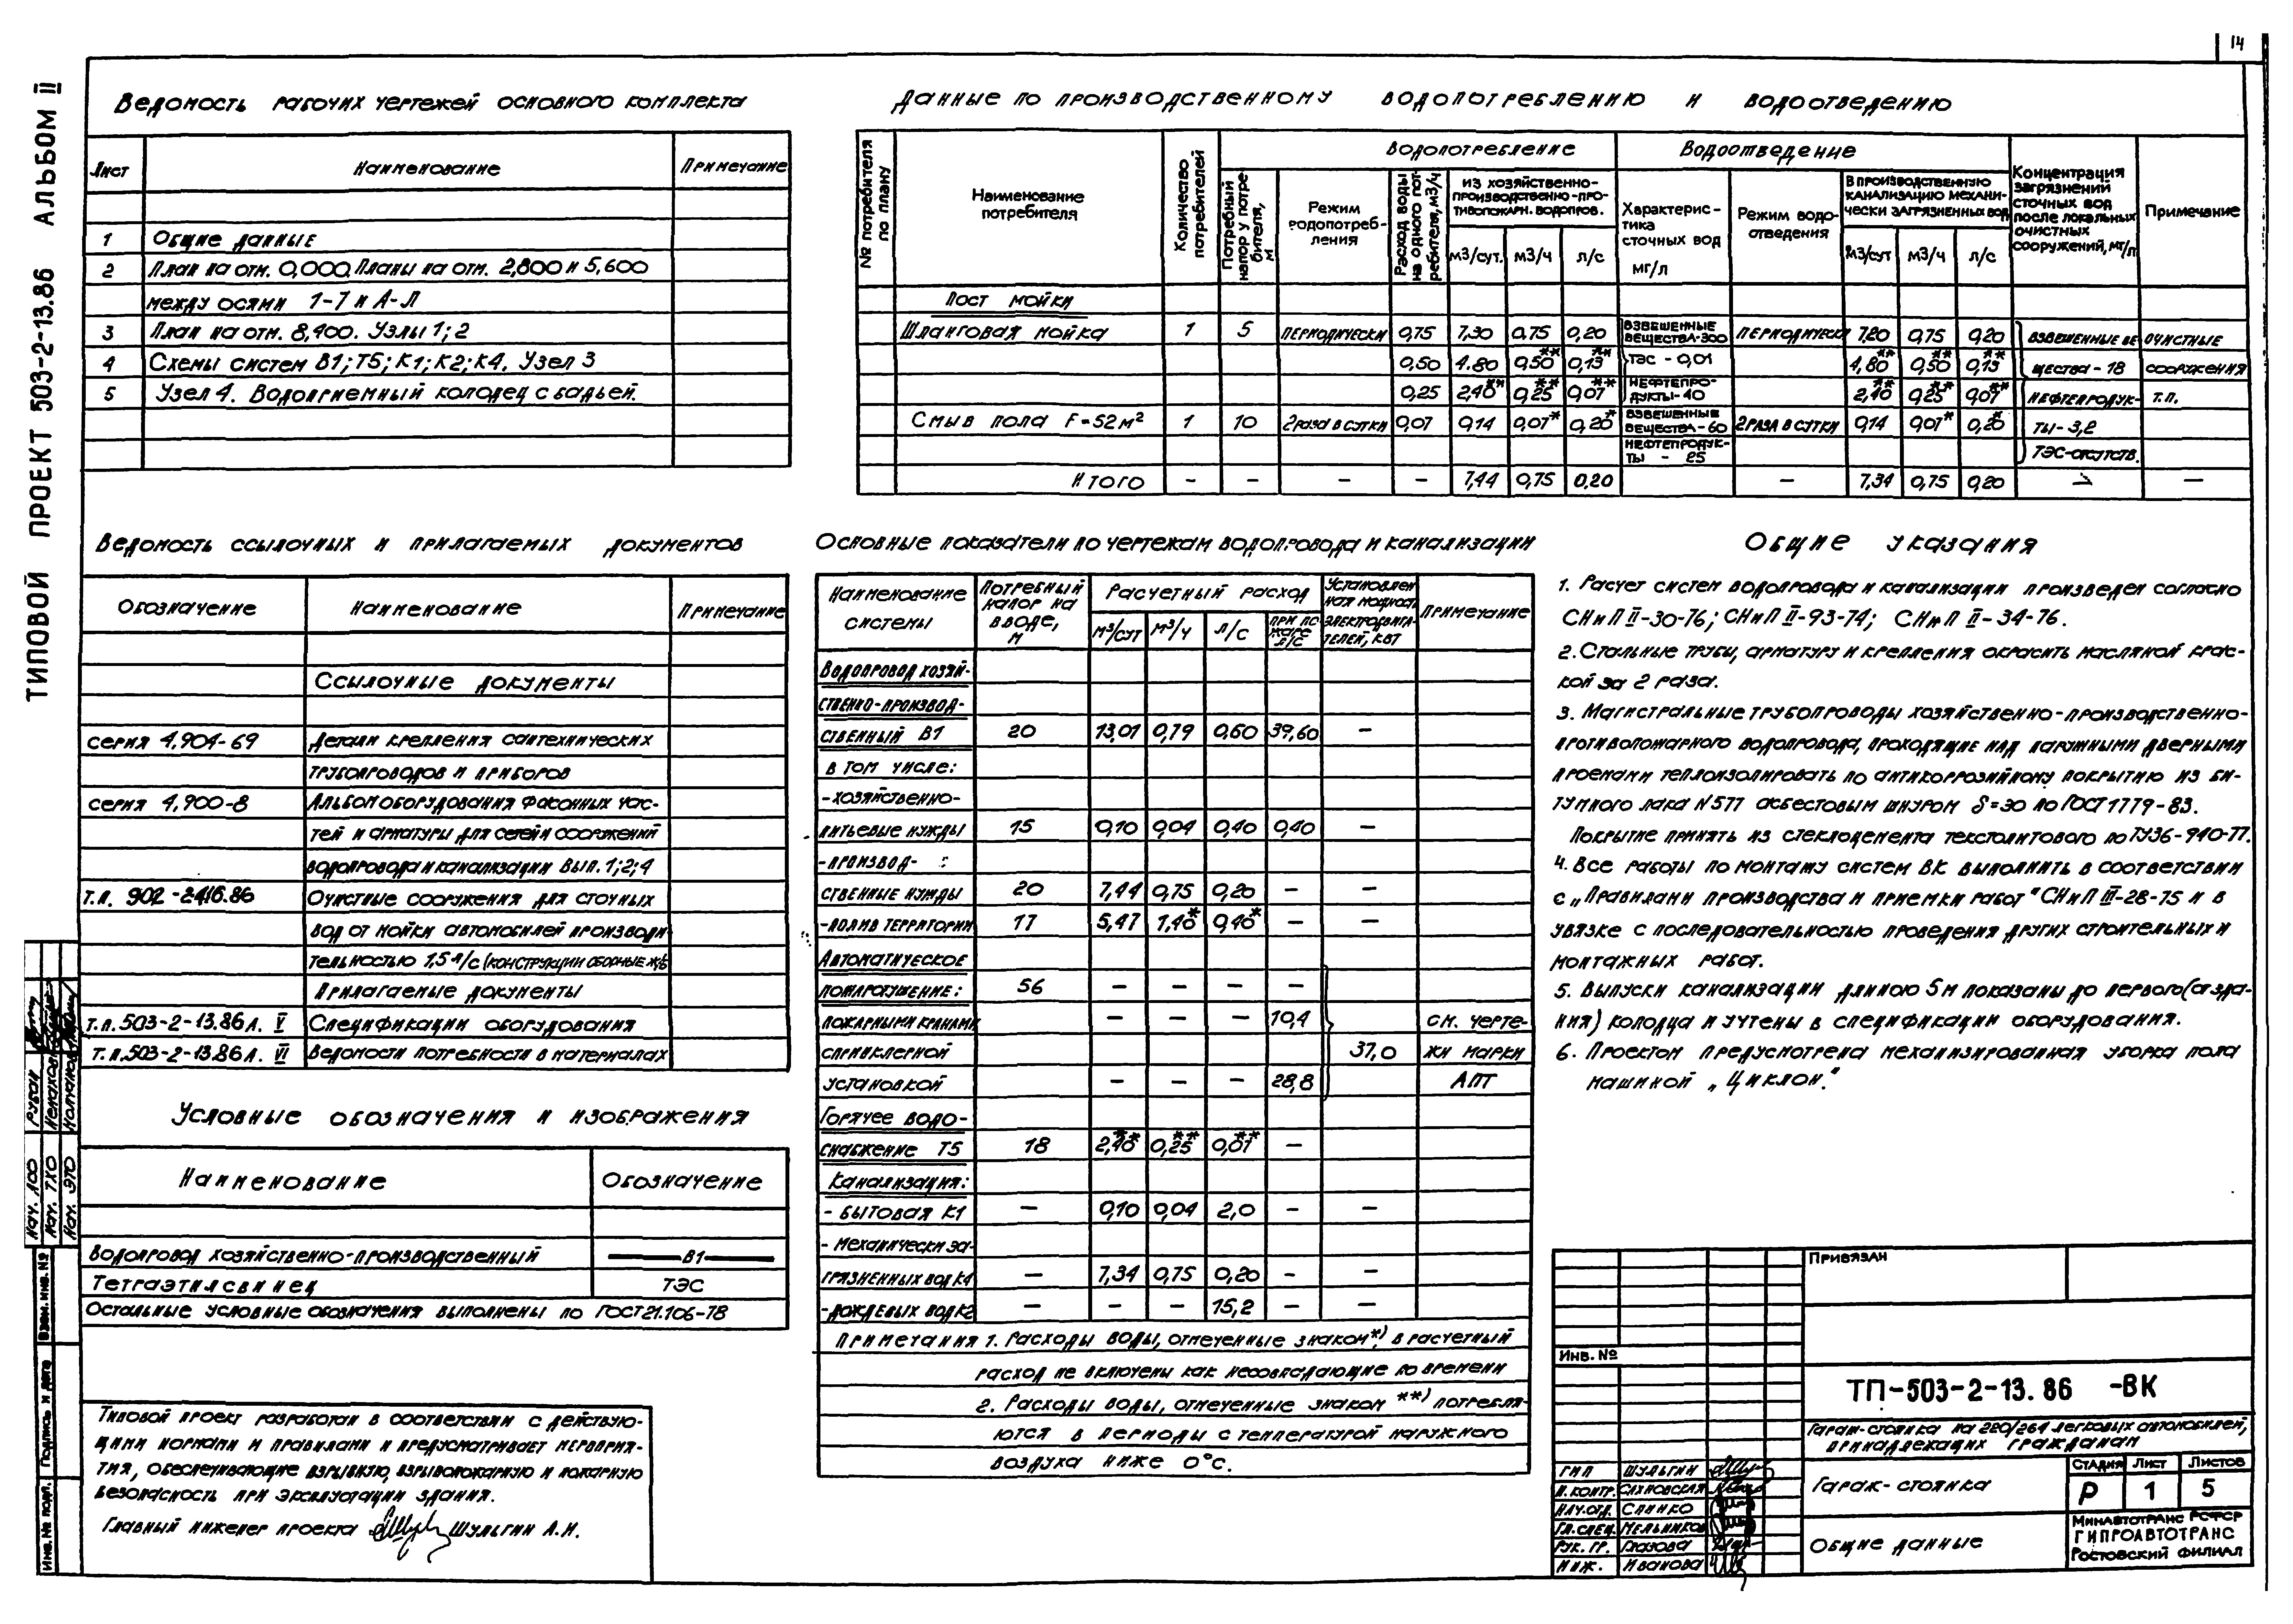 14
ТИПОВОЙ ПРОЕКТ 503-2-13.86 АЛЬБОМ II
Ведомость рабочих чертежей основного комплекта
Лист Наименование Примечание
1 Общие данные
2 План на отм. 0,000. Планы на отм. 2,800 и 5,600
между осями 1-7 и А-Л
3 План на отм. 8,400. Узлы 1; 2
4 Схемы систем В1; Т5; К1; К2; К4. Узел 3
5 Узел 4. Водоприемный колодец с бадьей.
Данные по производственному водопотреблению и водоотведению
№ потребителя по плану
Наименование потребителя
Количество потребителей
Водопотребление
Потребный напор у потребителя, м
Режим водопотребления
Расход воды на одного потребителя, м3/ч
из хозяйственно-производственно-противопожарн. водопров.
м3/сут. м3/ч л/с
Водоотведение
Характеристика сточных вод мг/л
Режим водоотведения
В производственную канализацию механически загрязненных вод
м3/сут м3/ч л/с
Концентрация загрязнений сточных вод после локальных очистных сооружений, мг/л
Примечание
Пост мойки
Шланговая мойка 1 5 периодически 0,75 7,30 0,75 0,20 взвешенные вещества-300 периодически 7,20 0,75 0,20 взвешенные ве- очистные
0,50 4.80 0,50** 0,13** ТЭС - 0,01 4,80** 0,50** 0,13** щества - 18 сооружения
0,25 2,40** 0,25** 0,07** нефтепродукты-40 2,40** 0,25** 0,07** нефтепродук- т.п.
Смыв пола F=52м² 1 10 2 раза в сутки 0,07 0,14 0,07* 0,20* взвешенные вещества-60 2 раза в сутки 0,14 0,07* 0,20* ты-3,2
нефтепродукты - 25 ТЭС-отсутств.
Итого – – – – 7,44 0,75 0,20 – 7,34 0,75 0,20 – –
Ведомость ссылочных и прилагаемых документов
Обозначение Наименование Примечание
Ссылочные документы
серия 4.904-69 Детали крепления сантехнических
трубопроводов и приборов
серия 4.900-8 Альбом оборудования фасонных час-
тей и арматуры для сетей и сооружений
водопровода и канализации Вып. 1; 2; 4
т.п. 902-2-416.86 Очистные сооружения для сточных
вод от мойки автомобилей производи
тельностью 1,5 л/с (конструкции сборные ж/б
Прилагаемые документы
т.п. 503-2-13.86 л. V Спецификации оборудования
т.п. 503-2-13.86 л. VI Ведомости потребности в материалах
Условные обозначения и изображения
Наименование Обозначение
Водопровод хозяйственно-производственный В1
Тетраэтилсвинец ТЭС
Остальные условные обозначения выполнены по ГОСТ 21.106-78
Типовой проект разработан в соответствии с действую-
щими нормами и правилами и предусматривает мероприя-
тия, обеспечивающие взрывную, взрывопожарную и пожарную
безопасность при эксплуатации здания.
Главный инженер проекта Шульгин А.И.
Основные показатели по чертежам водопровода и канализации
Наименование системы
Потребный напор на вводе, м
Расчетный расход
м³/сут м³/ч л/с при пожаре л/с
Установленная мощность электродвигателей, кВт
Примечание
Водопровод хозяй-
ственно-производ-
ственный В1 20 13,01 0,79 0,60 39,60 –
в том числе:
-хозяйственно-
питьевые нужды 15 0,10 0,04 0,40 0,40 –
-производ-
ственные нужды 20 7,44 0,75 0,20 – –
-полив территории 17 5,47 1,40* 0,40* – –
Автоматическое
пожаротушение: 56 – – – –
пожарными кранами – – 10,4 см. черте-
спринклерной 37,0 жи марки
установкой – – – 28,8 АПТ
Горячее водо-
снабжение Т5 18 2,40** 0,25** 0,07** –
Канализация:
- бытовая К1 – 0,10 0,04 2,0 – –
- механически за-
грязненных вод К4 – 7,34 0,75 0,20 – –
-дождевых вод К2 – – – 15,2 – –
Примечания 1. Расходы воды, отмеченные знаком *), в расчетный
расход не включены как несовпадающие по времени
2. Расходы воды, отмеченные знаком **) потребля-
ются в периоды с температурой наружного
воздуха ниже 0°С.
Общие указания
1. Расчет систем водопровода и канализации произведен согласно
СНиП II-30-76; СНиП II-93-74; СНиП II-34-76.
2. Стальные трубы, арматуру и крепления окрасить масляной крас-
кой за 2 раза.
3. Магистральные трубопроводы хозяйственно-производственно-
противопожарного водопровода, проходящие над наружными дверными
проемами теплоизолировать по антикоррозийному покрытию из би-
тумного лака №577 асбестовым шнуром δ=30 по ГОСТ 1779-83.
Покрытие принять из стеклоцемента текстолитового по ТУ36-940-77.
4. Все работы по монтажу систем ВК выполнить в соответствии
с „Правилами производства и приемки работ" СНиП III-28-75 и в
увязке с последовательностью проведения других строительных и
монтажных работ.
5. Выпуски канализации длиною 5м показаны до первого (от зда-
ния) колодца и учтены в спецификации оборудования.
6. Проектом предусмотрена механизированная уборка пола
машиной „Циклон."
Привязан
Инв. №
ТП-503-2-13.86 -ВК
Гараж-стоянка на 220/264 легковых автомобилей,
принадлежащих гражданам
ГИП Шульгин
Н.контр. Сахновская
Нач.отд. Спинко
Гл.спец. Мельников
Рук. гр. Глазова
Инж. Иванова
Гараж-стоянка
Стадия Лист Листов
Р 1 5
Общие данные
Минавтотранс РСФСР
ГИПРОАВТОТРАНС
Ростовский филиал
Нач. ЛОО Рубан
Нач. ТХО
Нач. ЭТО
Взам. инв. №
Подпись и дата
Инв. № подл.